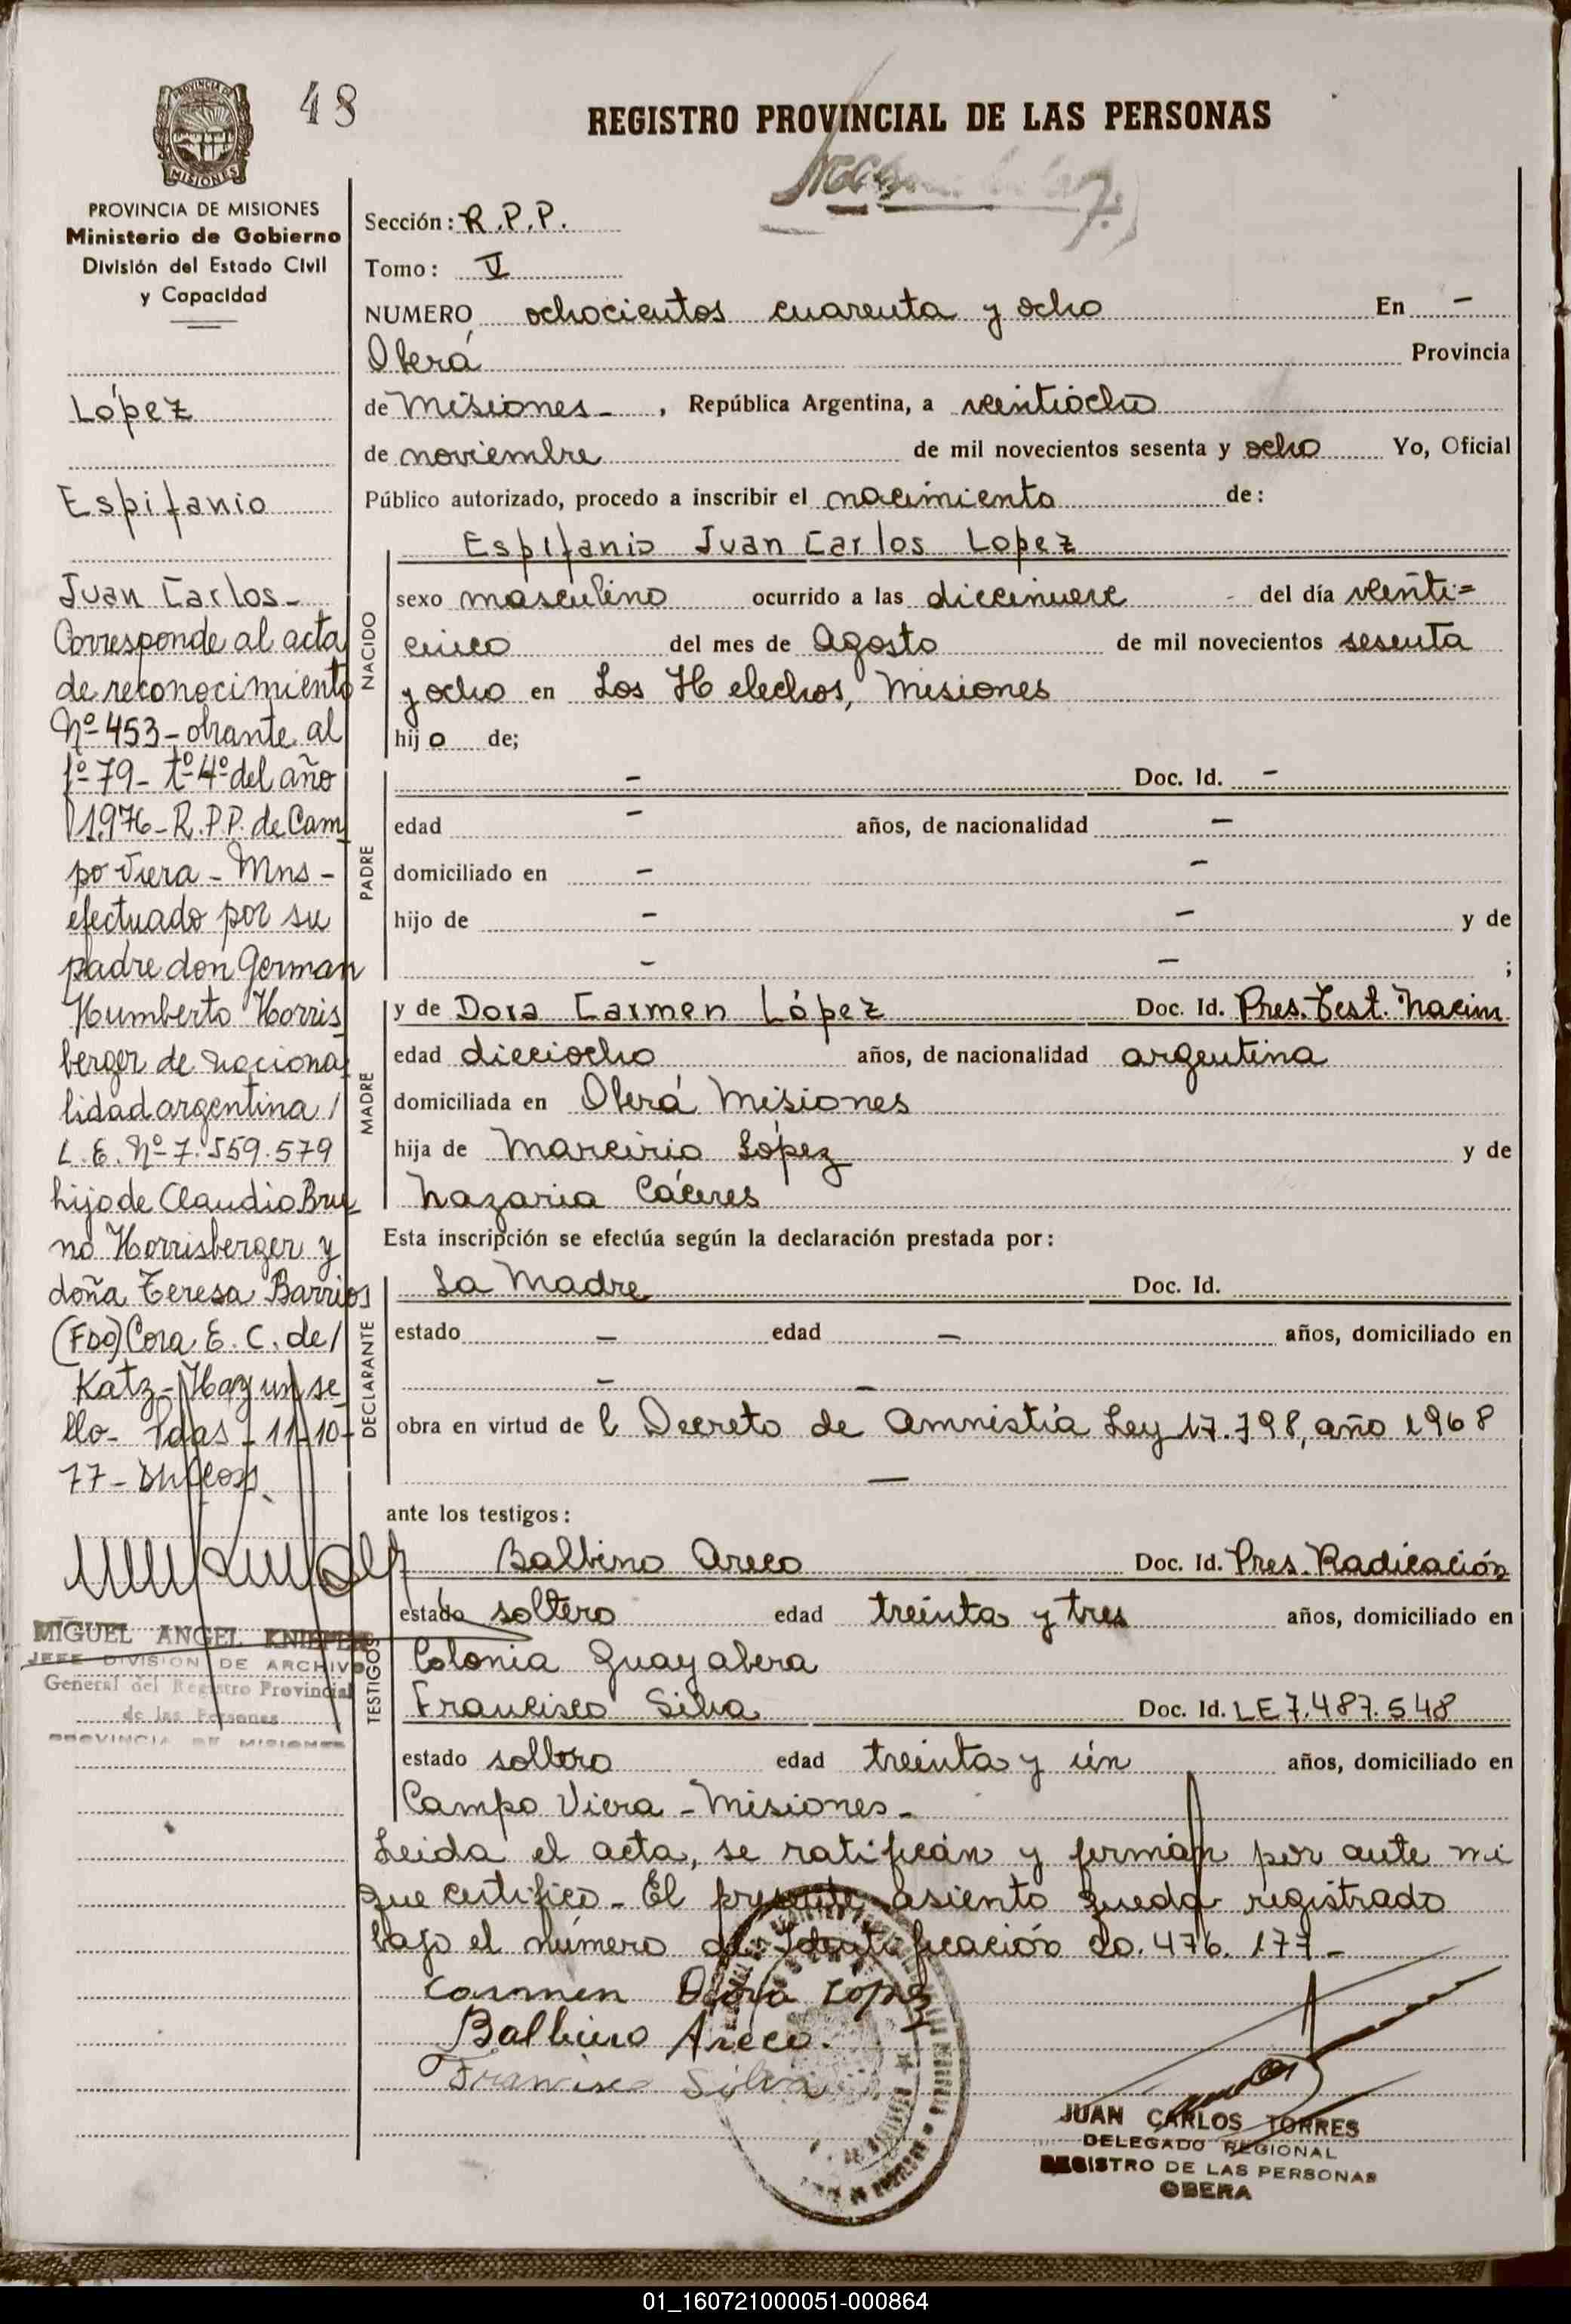 48
REGISTRO PROVINCIAL DE LAS PERSONAS
PROVINCIA DE MISIONES
Ministerio de Gobierno
División del Estado Civil
y Capacidad
López
Espifanio
Juan Carlos_
Corresponde al acta
de reconocimiento
Nº 453 - obrante al
fº 79 - tº 4º del año
1976 - R.P.P. de Cam
po Viera - Mns -
efectuado por su
padre don German
Humberto Horris
berger de naciona
lidad argentina /
L.E. Nº 7.559.579
hijo de Claudio Bru
no Horrisberger y
doña Teresa Barrios
(Fdo) Cora E. C. de /
Katz - Hay un se
llo - Pdas - 11-10-
77 -
MIGUEL ANGEL
JEFE DIVISION DE ARCHIVO
General del Registro Provincial
de las Personas
PROVINCIA DE MISIONES
Sección: R.P.P.
Tomo: V
NUMERO ochocientos cuarenta y ocho En -
Oberá Provincia
de Misiones - , República Argentina, a veintiocho
de noviembre de mil novecientos sesenta y ocho Yo, Oficial
Público autorizado, procedo a inscribir el nacimiento de:
Espifanio Juan Carlos Lopez
NACIDO
sexo masculino ocurrido a las diecinueve - del día veinti=
cinco del mes de Agosto de mil novecientos sesenta
y ocho en Los Helechos, Misiones
hijo de;
PADRE
- Doc. Id. -
edad - años, de nacionalidad -
domiciliado en - -
hijo de - - y de
- - ;
MADRE
y de Dora Carmen López Doc. Id. Pres. Test. Nacim
edad dieciocho años, de nacionalidad argentina
domiciliada en Oberá Misiones
hija de Marcirio López y de
Nazaria Cáceres
Esta inscripción se efectúa según la declaración prestada por:
DECLARANTE
La Madre Doc. Id.
estado - edad - años, domiciliado en
- -
obra en virtud de l Decreto de Amnistía Ley 17.798, año 1968
—
ante los testigos:
TESTIGOS
Balbino Areco Doc. Id. Pres. Radicación
estado soltero edad treinta y tres años, domiciliado en
Colonia Guayabera
Francisco Silva Doc. Id. LE 7.487.548
estado soltero edad treinta y ún años, domiciliado en
Campo Viera - Misiones -
Leida el acta, se ratificán y firmán por ante mi
que certifico - El presente asiento queda registrado
bajo el número de Identificación 20.476.177 -
Carmen Dora Lopez
Balbino Areco.
Francisco Silva
JUAN CARLOS TORRES
DELEGADO REGIONAL
REGISTRO DE LAS PERSONAS
OBERA
01_160721000051-000864